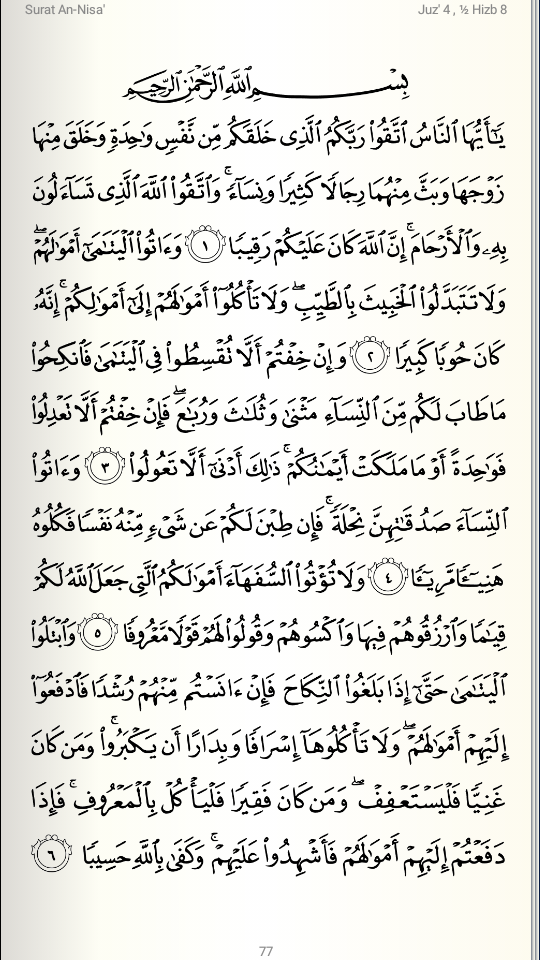 Surat An-Nisa' Juz' 4 , ½ Hizb 8
بِسْمِ ٱللَّهِ ٱلرَّحْمَٰنِ ٱلرَّحِيمِ
يَـٰٓأَيُّهَا ٱلنَّاسُ ٱتَّقُوا۟ رَبَّكُمُ ٱلَّذِى خَلَقَكُم مِّن نَّفْسٍ وَٰحِدَةٍ وَخَلَقَ مِنْهَا
زَوْجَهَا وَبَثَّ مِنْهُمَا رِجَالًا كَثِيرًا وَنِسَآءً ۚ وَٱتَّقُوا۟ ٱللَّهَ ٱلَّذِى تَسَآءَلُونَ
بِهِۦ وَٱلْأَرْحَامَ ۚ إِنَّ ٱللَّهَ كَانَ عَلَيْكُمْ رَقِيبًا ١ وَءَاتُوا۟ ٱلْيَتَـٰمَىٰٓ أَمْوَٰلَهُمْ ۖ
وَلَا تَتَبَدَّلُوا۟ ٱلْخَبِيثَ بِٱلطَّيِّبِ ۖ وَلَا تَأْكُلُوٓا۟ أَمْوَٰلَهُمْ إِلَىٰٓ أَمْوَٰلِكُمْ ۚ إِنَّهُۥ
كَانَ حُوبًا كَبِيرًا ٢ وَإِنْ خِفْتُمْ أَلَّا تُقْسِطُوا۟ فِى ٱلْيَتَـٰمَىٰ فَٱنكِحُوا۟
مَا طَابَ لَكُم مِّنَ ٱلنِّسَآءِ مَثْنَىٰ وَثُلَـٰثَ وَرُبَـٰعَ ۖ فَإِنْ خِفْتُمْ أَلَّا تَعْدِلُوا۟
فَوَٰحِدَةً أَوْ مَا مَلَكَتْ أَيْمَـٰنُكُمْ ۚ ذَٰلِكَ أَدْنَىٰٓ أَلَّا تَعُولُوا۟ ٣ وَءَاتُوا۟
ٱلنِّسَآءَ صَدُقَـٰتِهِنَّ نِحْلَةً ۚ فَإِن طِبْنَ لَكُمْ عَن شَىْءٍ مِّنْهُ نَفْسًا فَكُلُوهُ
هَنِيٓـًٔا مَّرِيٓـًٔا ٤ وَلَا تُؤْتُوا۟ ٱلسُّفَهَآءَ أَمْوَٰلَكُمُ ٱلَّتِى جَعَلَ ٱللَّهُ لَكُمْ
قِيَـٰمًا وَٱرْزُقُوهُمْ فِيهَا وَٱكْسُوهُمْ وَقُولُوا۟ لَهُمْ قَوْلًا مَّعْرُوفًا ٥ وَٱبْتَلُوا۟
ٱلْيَتَـٰمَىٰ حَتَّىٰٓ إِذَا بَلَغُوا۟ ٱلنِّكَاحَ فَإِنْ ءَانَسْتُم مِّنْهُمْ رُشْدًا فَٱدْفَعُوٓا۟
إِلَيْهِمْ أَمْوَٰلَهُمْ ۖ وَلَا تَأْكُلُوهَآ إِسْرَافًا وَبِدَارًا أَن يَكْبَرُوا۟ ۚ وَمَن كَانَ
غَنِيًّا فَلْيَسْتَعْفِفْ ۖ وَمَن كَانَ فَقِيرًا فَلْيَأْكُلْ بِٱلْمَعْرُوفِ ۚ فَإِذَا
دَفَعْتُمْ إِلَيْهِمْ أَمْوَٰلَهُمْ فَأَشْهِدُوا۟ عَلَيْهِمْ ۚ وَكَفَىٰ بِٱللَّهِ حَسِيبًا ٦
77